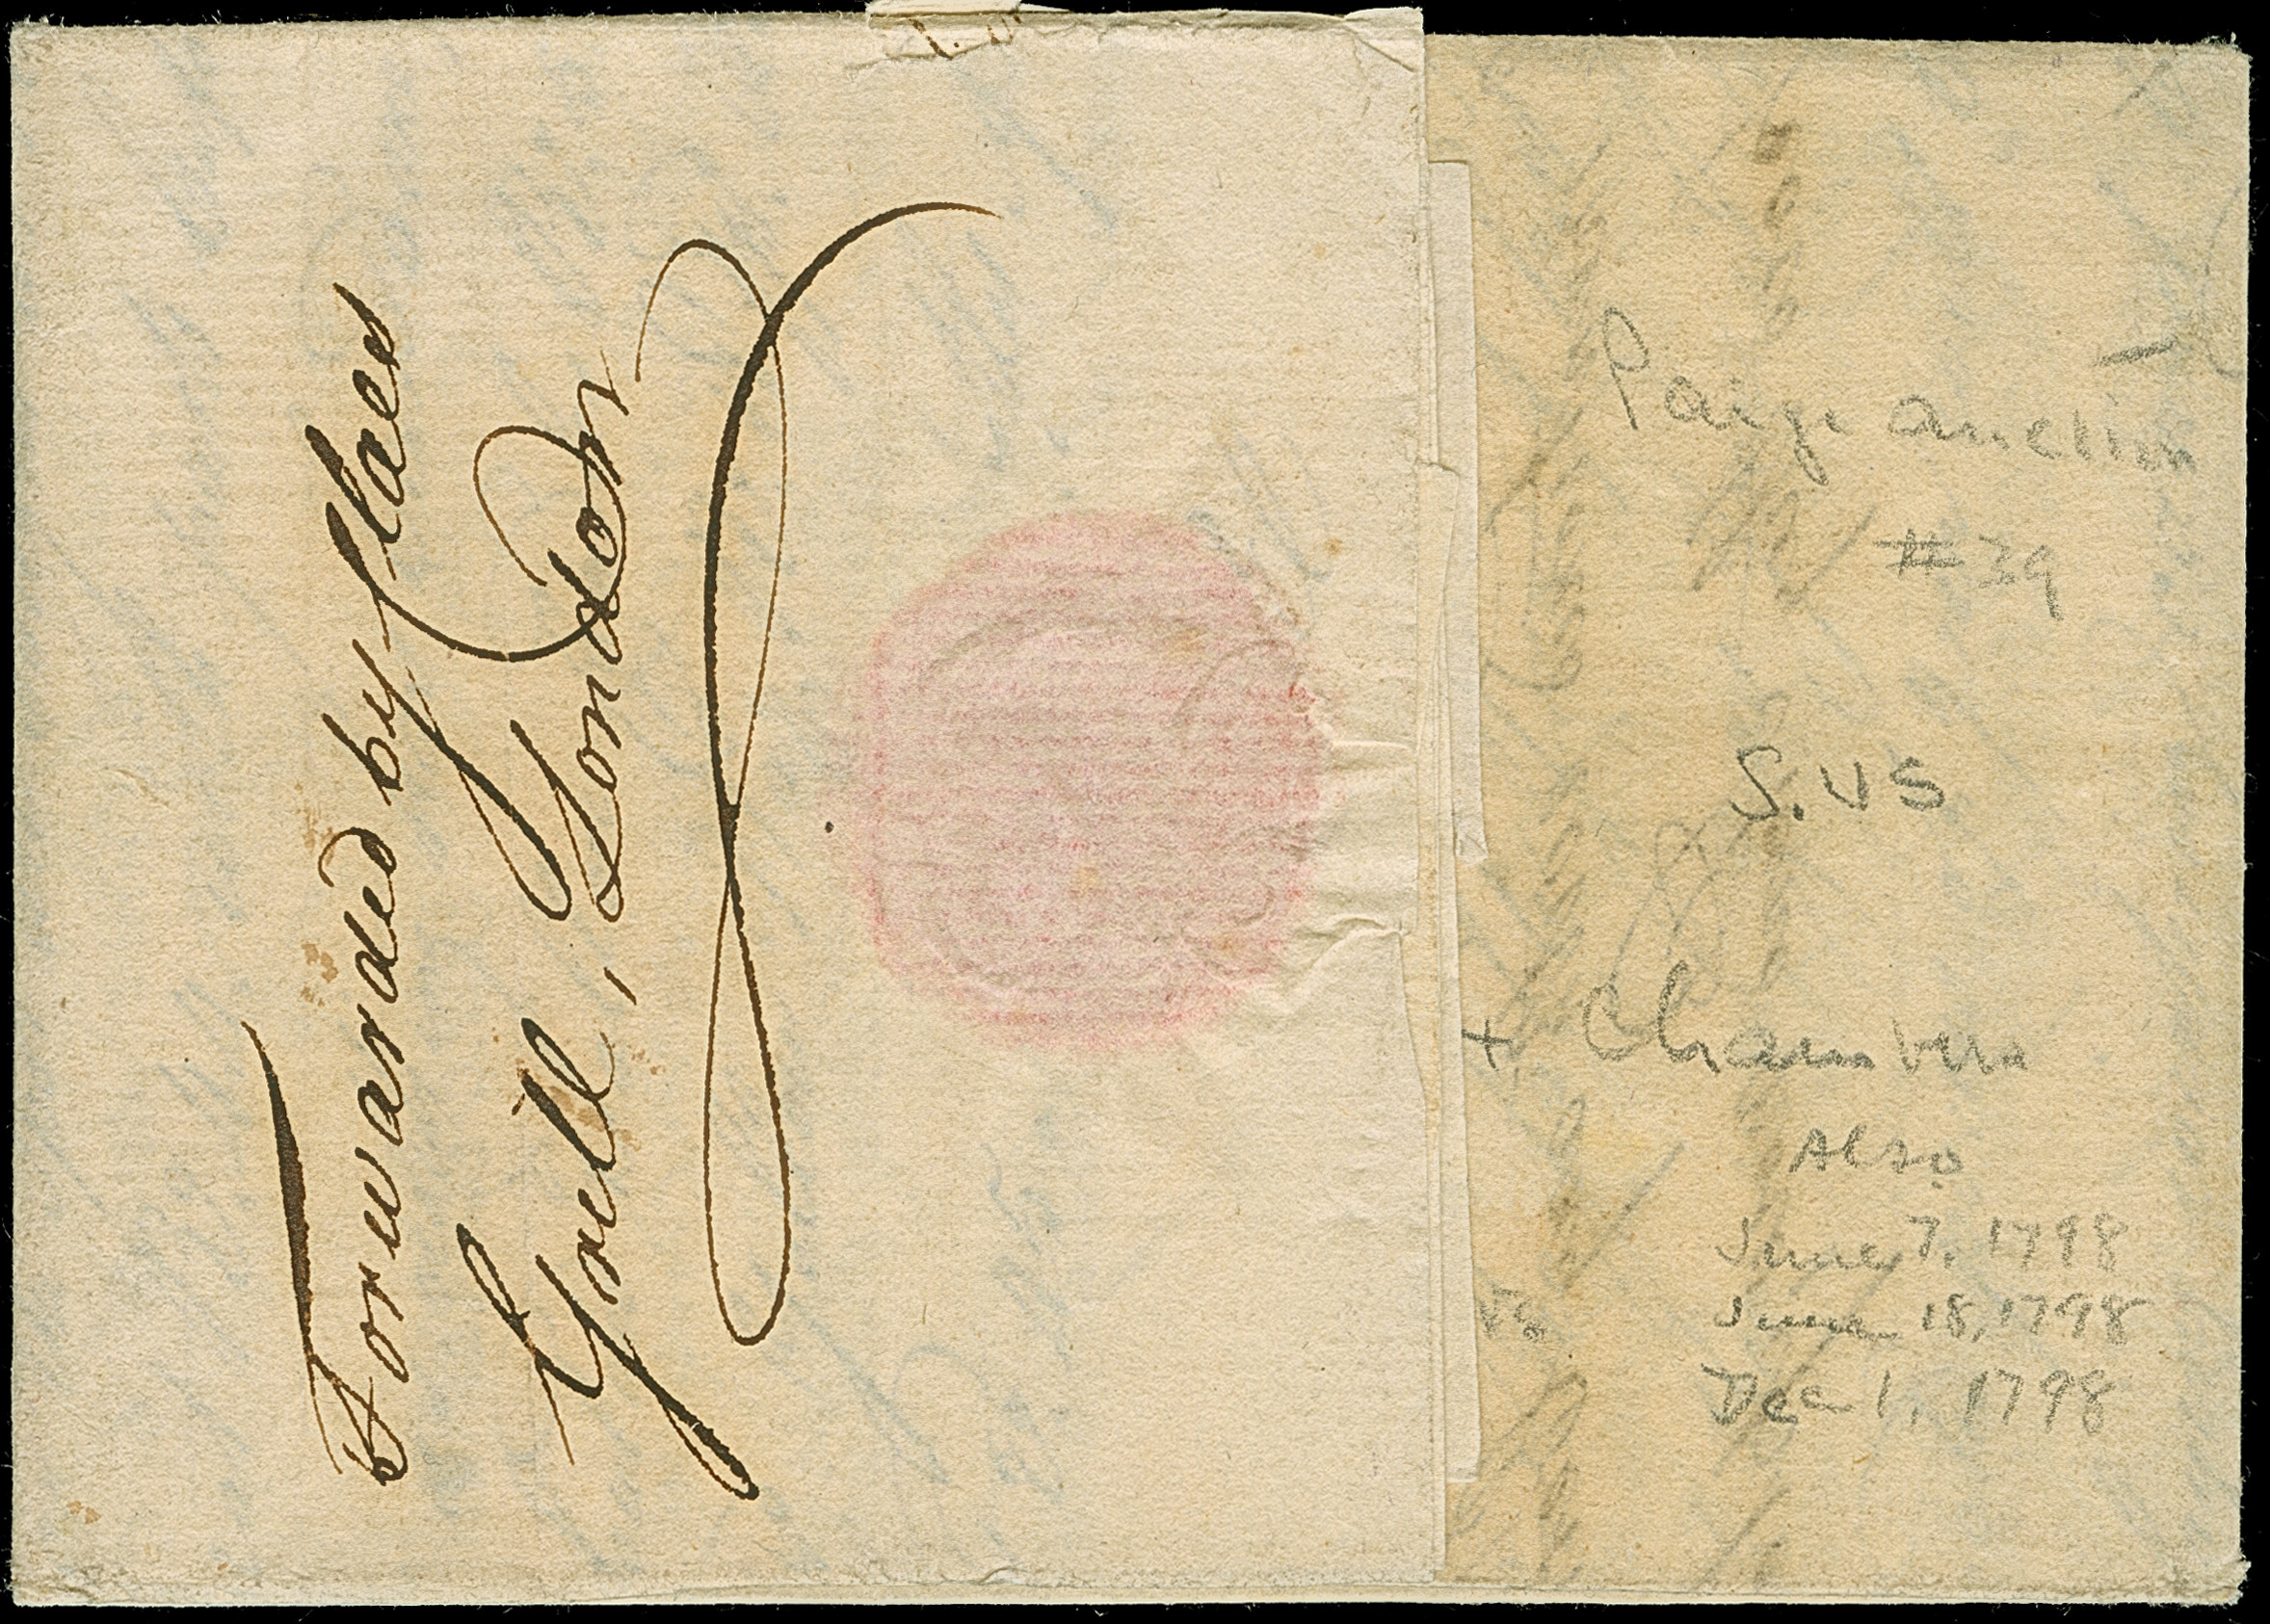 Forwarded by Claes
Grill, London
Paige auction
#39
S.US
+ Chambers
Also
June 7, 1798
June 18, 1798
Dec 1, 1798